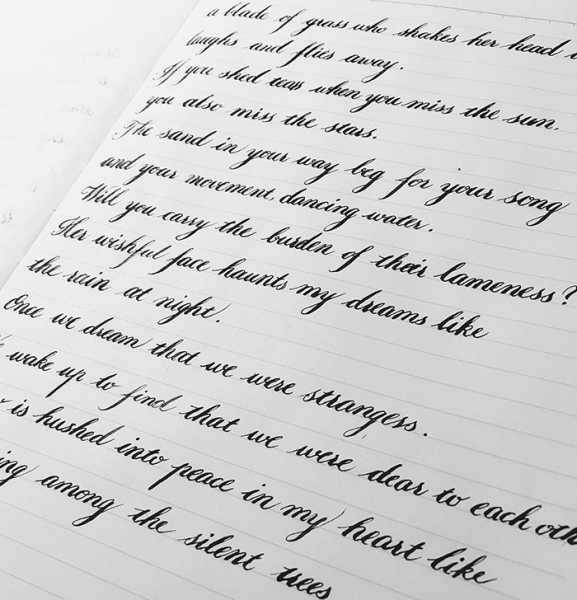 a blade of grass who shakes her head
laughs and flies away.
If you shed tears when you miss the sun,
you also miss the stars.
The sand in your way beg for your song
and your movement, dancing water.
Will you carry the burden of their lameness?
Her wishful face haunts my dreams like
the rain at night.
Once we dream that we were strangers.
wake up to find that we were dear to each oth
is hushed into peace in my heart like
ing among the silent trees